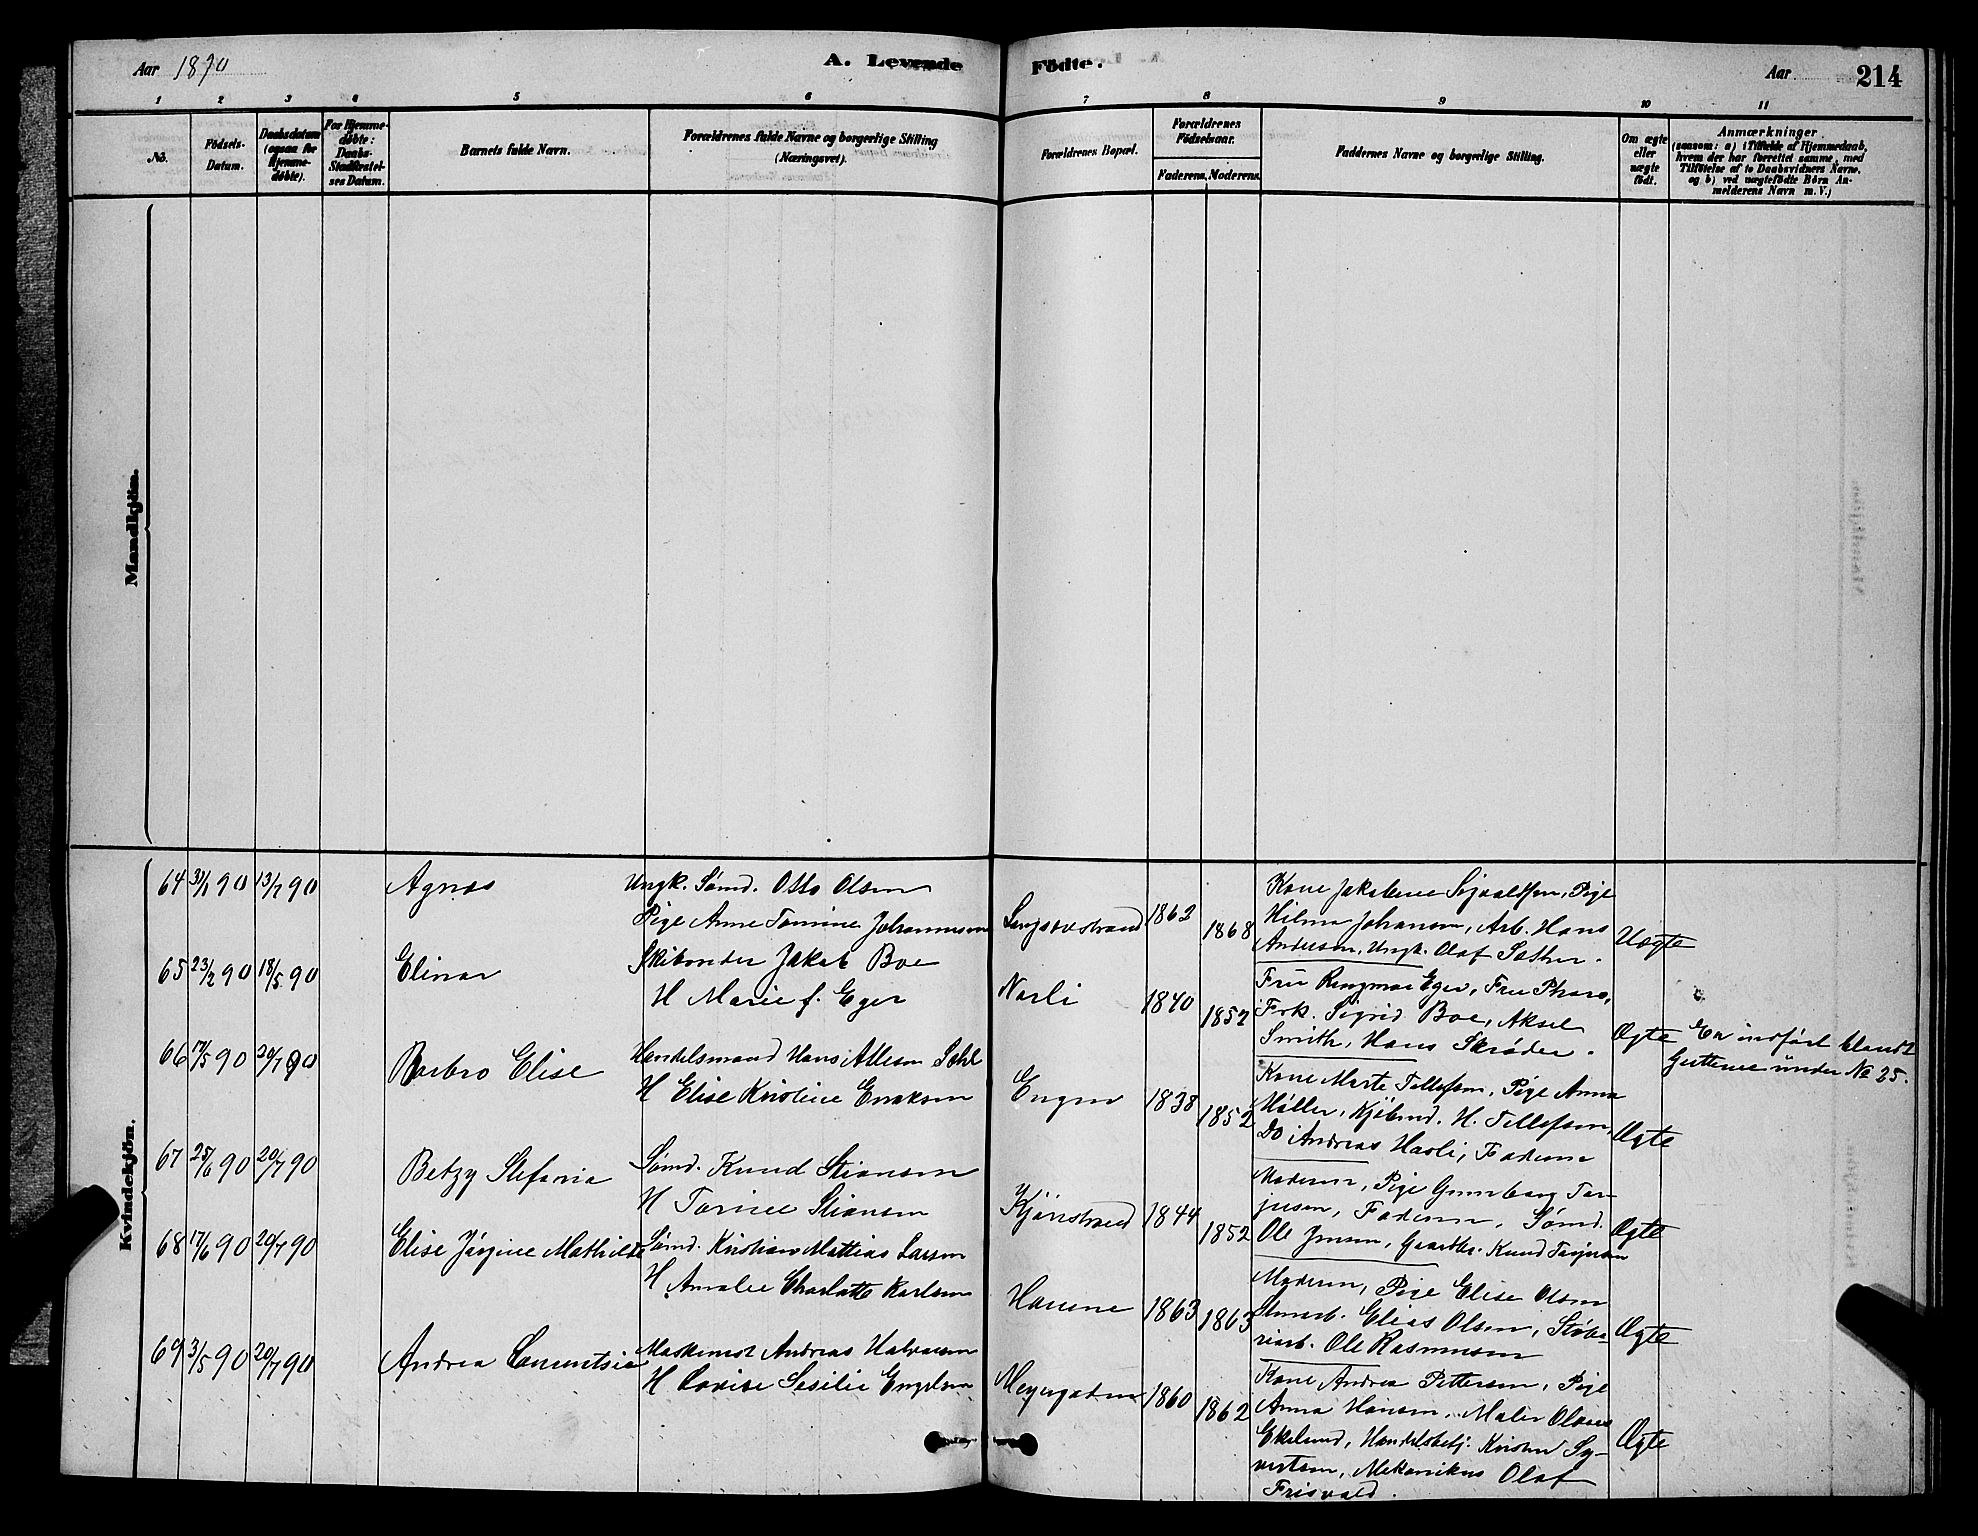 Aar 1890
A. Levende
Födte.
Aar
214
1 2 3 4 5 6 7 8 9 10 11
No.
Födsels-
Datum.
Daabsdatum
(ogsaa for
Hjemme-
döbte).
For Hjemme-
döbte:
Daabs-
Stadfæstel-
ses Datum.
Barnets fulde Navn.
Forældrenes fulde Navne og borgerlige Stilling
(Næringsvei).
Forældrenes Bopæl.
Forældrenes
Födselsaar.
Faderens. Moderens.
Faddernes Navne og borgerlige Stilling.
Om ægte
eller
uægte
födt.
Anmærkninger
(saasom: a) i Tilfælde af Hjemmedaab,
hvem der har forrettet samme, med
Tilföielse af to Daabsvidners Navne.
og b) ved uægtefödte Börn An-
melderens Navn m. V.)
Mandkjön.
Kvindekjön.
64 31/1 90 13/7 90 Agnes
Ungk. Sømd. Otto Olsen
Pige Anne Tomine Johannesen
1863
1868
Kone Jakobine Pige
Hilma Johansen, Arb. Hans
Andersen, Ungk. Olaf Sother.
Uægte
65 23/2 90 18/5 90 Elinar
Skibsreder Jakob Boe
H Marie f. Eger
Narli
1840
1852
Fru Eger, Fru
Frk. Sigrid Boe, Aksel
Smith, Hans Skrøder.
Ægte
Er indført blandt
Guttene under No 25.
66 17/5 90 20/7 90 Barbro Elise
Handelsmand Hans
H Elise Kristine
Engen
1838
1852
Kone Marte Tellefsen, Pige Anna
Møller, Kjøbmd. H. Tellefsen,
Do Andreas Havli, Faderen
Ægte
67 25/6 90 20/7 90 Betzy Stefania
Sømd. Knud Stiansen
H Torine Stiansen
1844
1852
Moderen, Pige Gunborg Tar-
jusen, Faderen, Sømd.
Ole Jensen, Gaardbr. Knud Tarjusen
Ægte
68 17/6 90 20/7 90 Elise Jørgine Mathilde
Sømd. Kristian Mattias Larsen
H Amalie Charlotte Karlsen
Havene
1863
1863
Moderen, Pige Elise Olsen
Elias Olsen,
Ole Rasmussen
Ægte
69 3/5 90 20/7 90 Andrea
Maskinist Andreas Halvorsen
H Lovise Sesilie Engelsen
Meyergaden
1860
1862
Kone Andrea Pettersen, Pige
Anna Hansen, Maler
Ekelund, Handelsbetj. Kristen Sy-
vertsen, Mekanikus Olaf
Frisvold.
Ægte